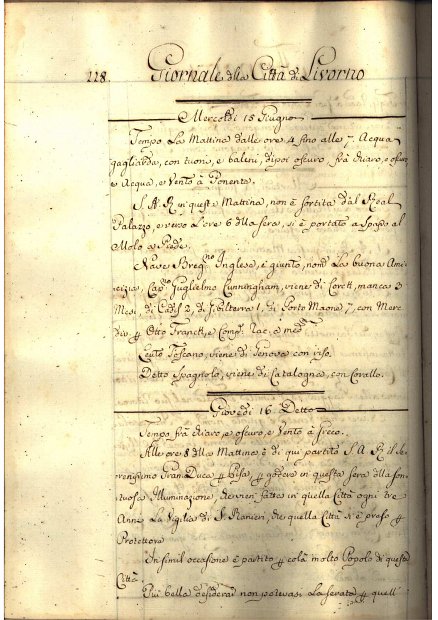 118.
Giornale della Città di Livorno
Mercoldi 15 Giugno
Tempo. La Mattina dalle ore 4 fino alle 7. Acqua
gagliarda, con tuoni, e baleni, di poi oscuro frà chiaro, e oscuro
e Acqua, e Vento à Ponente.
S. A. R. in questa Mattina, non è sortita dal Real
Palazzo, e verso L'ore 6 della sera, si è portato a Spasso al
Molo a Piedi.
Nave Breg.no Inglese, è giunto, nom.to La buona Ami-
cizia, Cap.no Guglielmo Cunningham, viene di manca 3
Mesi, di Cadis 2, di Gibilterra 1, di Porto Maone 7, con Merc
Otto Franck, e Comp.
Leuto Toscano, viene di Genova con riso.
Detto Spagnolo, viene di Catalogna, con Corallo.
Giovedi 16. Detto
Tempo frà chiaro, e oscuro, e Vento à Greco.
Alle ore 8 della Mattina è di qui partito S. A. R. il Se-
renissimo Gran Duca Pisa, godere in questa sera della son-
tuosa Illuminazione, che vien fatta in quella Città ogni tre
Anni La Vigilia di S. Ranieri, che quella Città si è preso
Protettore
In simil occasione è partito colà molto Popolo di questa
Città
Più bella desiderar non potevasi La serata quell